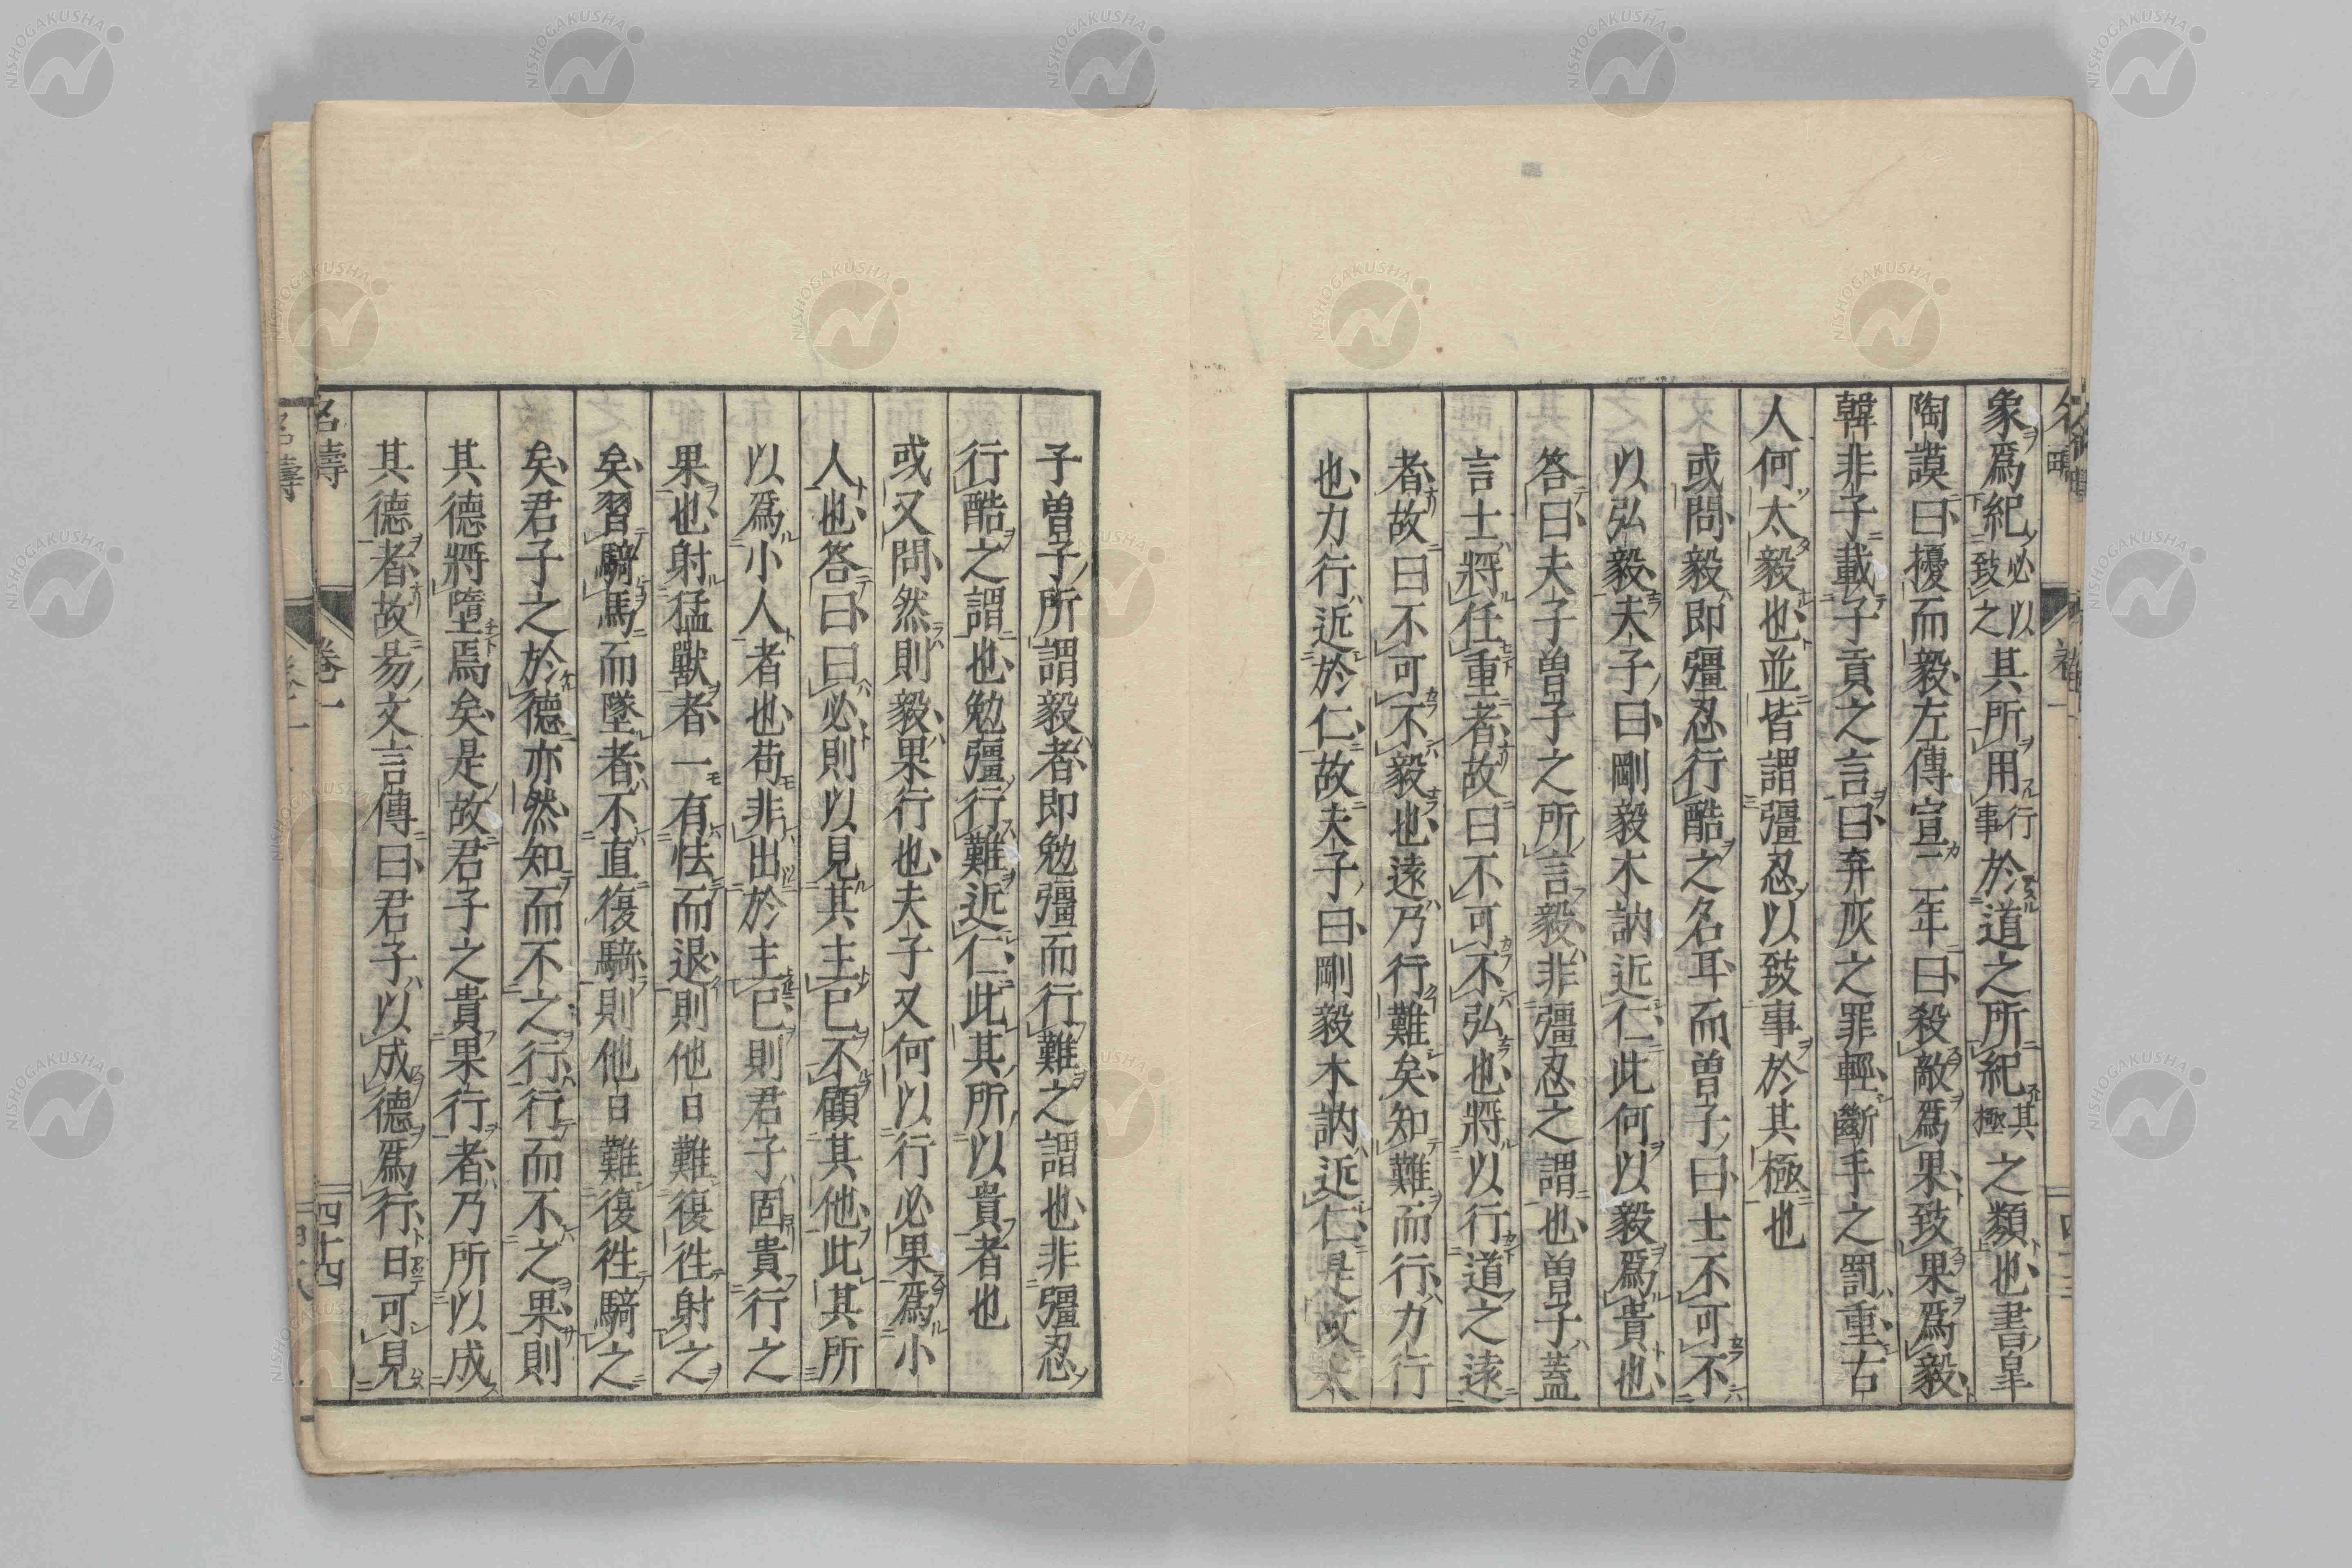 象爲紀必以致之其所用行事於道之所紀其極之類也書皐
陶謨曰擾而毅左傳宣二年曰殺敵爲果致果爲毅
韓非子載子貢之言曰弃灰之罪輕斷手之罰重古
人何太毅也並皆謂彊忍以致事於其極也
或問毅即彊忍行酷之名耳而曽子曰士不可不
以弘毅夫子曰剛毅木訥近仁此何以毅爲貴也
答曰夫子曽子之所言毅非彊忍之謂也曽子蓋
言士將任重者故曰不可不弘也將以行道之遠
者故曰不可不毅也遠乃行難矣知難而行力行
也力行近於仁故夫子曰剛毅木訥近仁是故夫
子曽子所謂毅者即勉彊而行難之謂也非彊忍
行酷之謂也勉彊行難近仁此其所以貴者也
或又問然則毅果行也夫子又何以行必果爲小
人也答曰曰必則以見其主已不顧其他此其所
以爲小人者也苟非出於主已則君子固貴行之
果也射猛獸者一有怯而退則他日難復徃射之
矣習騎馬而墜者不直復騎則他日難復徃騎之
矣君子之於德亦然知而不之行行而不之果則
其德將墮焉矣是故君子之貴果行者乃所以成
其德者故易文言傳曰君子以成德爲行日可見
名疇
卷一
四十四